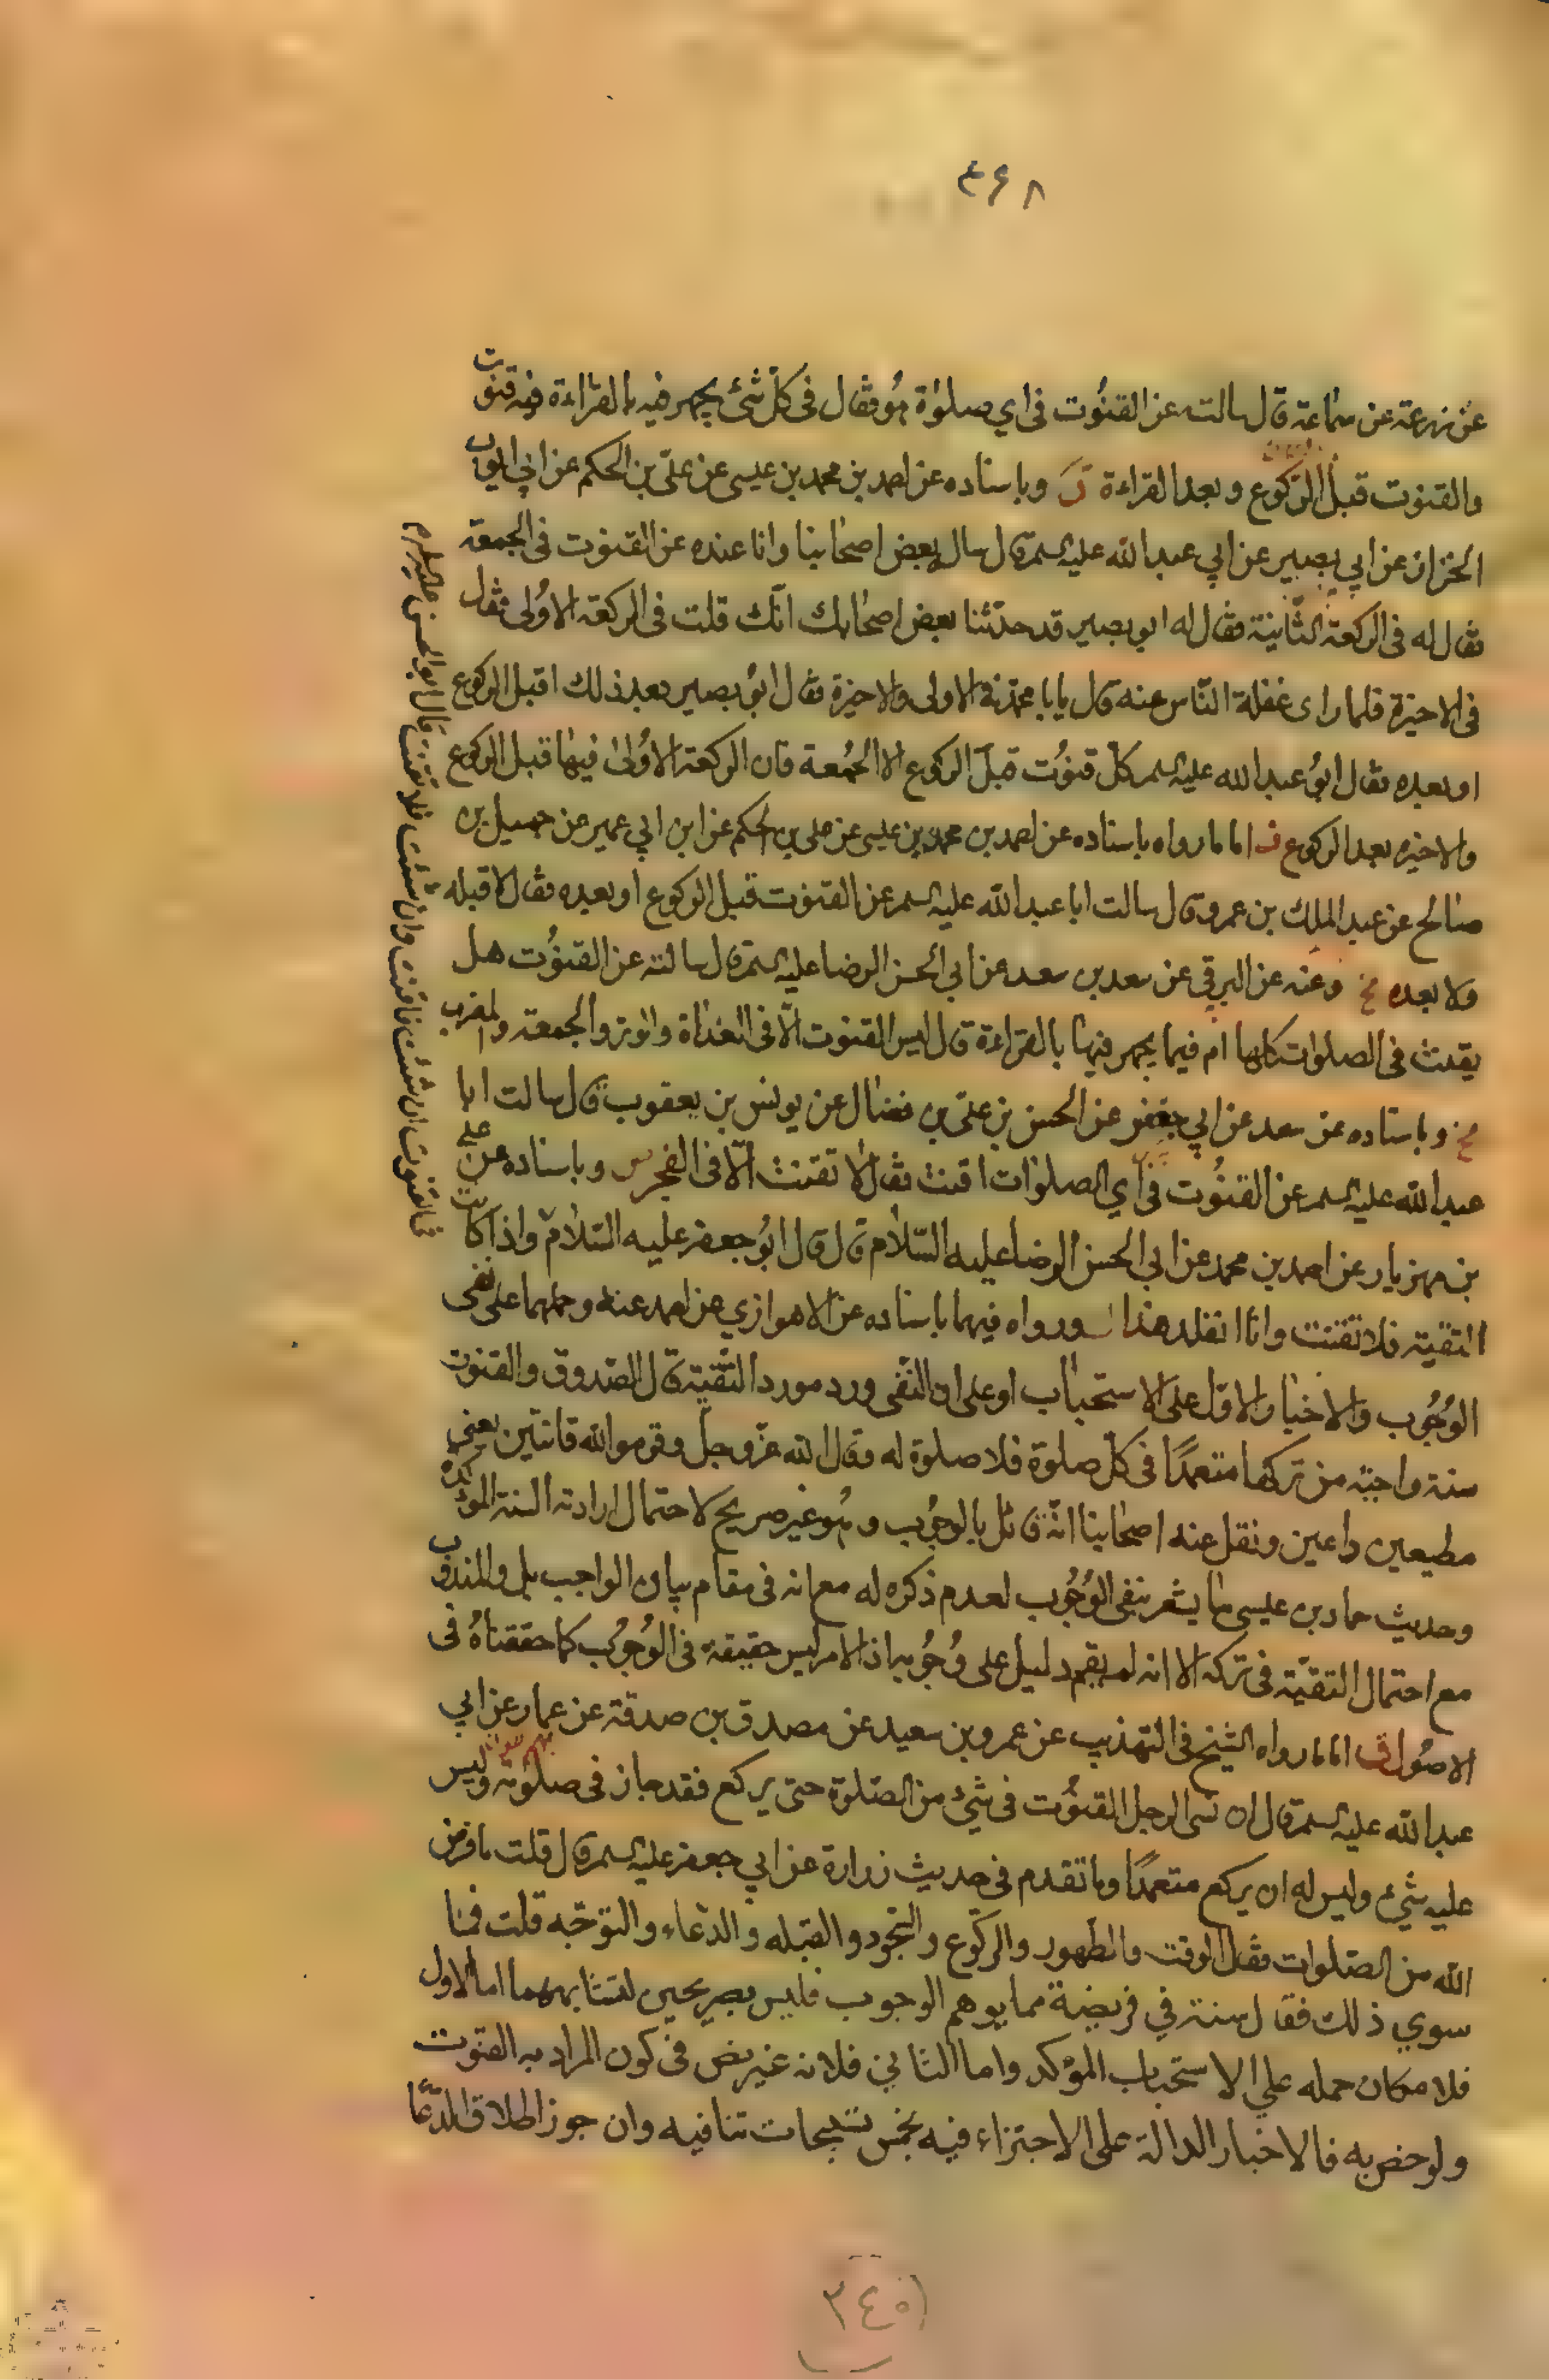 ۴۶۸
عن زرعة عن سماعة قال سالته عن القنوت في اي صلوة هو فقال في كل شئ يجهر فيه بالقراءة فيه قنوت
والقنوت قبل الركوع وبعد القراءة وباسناده عن احمد بن محمد بن عيسى عن علي بن الحكم عن ابي ايوب
الخزاز عن ابي بصير عن ابي عبد الله عليه السلم قال سال بعض اصحابنا وانا عنده عن القنوت في الجمعة
فقال له في الركعة الثانية فقال له ابو بصير قد حدثنا بعض اصحابك انك قلت في الركعة الاولى فقال
في الاخيرة فلما راى غفلة الناس عنه قال يابا محمد في الاولى والاخيرة فقال ابو بصير بعد ذلك اقبل الركوع
او بعده فقال ابو عبد الله عليه السلم كل قنوت قبل الركوع الا الجمعة فان الركعة الاولى فيها قبل الركوع
والاخيره بعد الركوع ف اما ما رواه باسناده عن احمد بن محمد بن عيسى عن علي بن الحكم عن ابن ابي عمير عن جميل بن
صالح عن عبد الملك بن عمرو قال سالت ابا عبد الله عليه السلم عن القنوت قبل الركوع او بعده فقال لا قبله
ولا بعده وعنه عن البرقي عن سعد بن سعد عن ابي الحسن الرضا عليه السلم قال سالته عن القنوت هل
يقنت في الصلوات كلها ام فيما يجهر فيها بالقراءة قال ليس القنوت الا في الغداة والوتر والجمعة والمغرب
وباسناده عن سعد عن ابي جعفر عن الحسن بن علي بن فضال عن يونس بن يعقوب قال سالت ابا
عبد الله عليه السلم عن القنوت في اي الصلوات اقنت فقال لا تقنت الا في الفجر وباسناده عن علي
بن مهزيار عن احمد بن محمد عن ابي الحسن الرضا عليه السلام قال قال ابو جعفر عليه السلام واذا كانت
التقية فلا تقنت وانا اتقلد هذا ورواه فيهما باسناده عن الاهوازي عن احمد عنه وحملهما على نفى
الوجوب والاخبار الاول على الاستحباب او على ان النفى ورد مورد التقية قال الصدوق والقنوت
سنة واجبة من تركها متعمدًا في كل صلوة فلا صلوة له فقال الله عز وجل وقوموا لله قانتين يعني
مطيعين داعين ونقل عنه اصحابنا انه قائل بالوجوب وهو غير صريح لاحتمال ارادته السنة المؤكدة
وحديث حماد بن عيسى مما يشعر بنفى الوجوب لعدم ذكره له مع انه في مقام بيان الواجب بل والمندوب
مع احتمال التقية في تركه الا انه لم يقم دليل على وجوبه اذ الامر ليس حقيقة في الوجوب كما حققناه في
الاصول ف اما ما رواه الشيخ في التهذيب عن عمرو بن سعيد عن مصدق بن صدقة عن عمار عن ابي
عبد الله عليه السلم قال ان نسى الرجل القنوت في شئ من الصلوة حتى يركع فقد جاز في صلوته وليس
عليه شئ وليس له ان يركع متعمدًا وما تقدم في حديث زرارة عن ابي جعفر عليه السلم قال قلت ما فرض
الله من الصلوات فقال الوقت والطهور والركوع والسجود والقبله والدعاء والتوجه قلت فما
سوي ذلك فقال سنة في فريضة مما يوهم الوجوب فليس بصريحين لتشابههما اما الاول
فلامكان حمله علي الاستحباب المؤكد واما الثاني فلانه غير نص في كون المراد به القنوت
ولو خص به فالاخبار الدالة على الاجتزاء فيه بخمس تسبيحات تنافيه وان جوز اطلاق الدعا
في القنوت ان شئت فاقنت وان شئت فلا تقنت قال ابو الحسن عليه السلم
٣٤٥